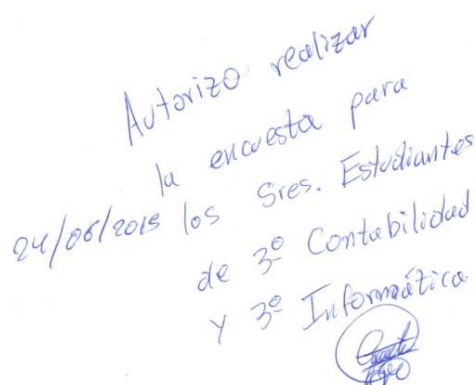 Autorizo realizar
la encuesta para
24/06/2015 los Sres. Estudiantes
de 3º Contabilidad
y 3º Informática